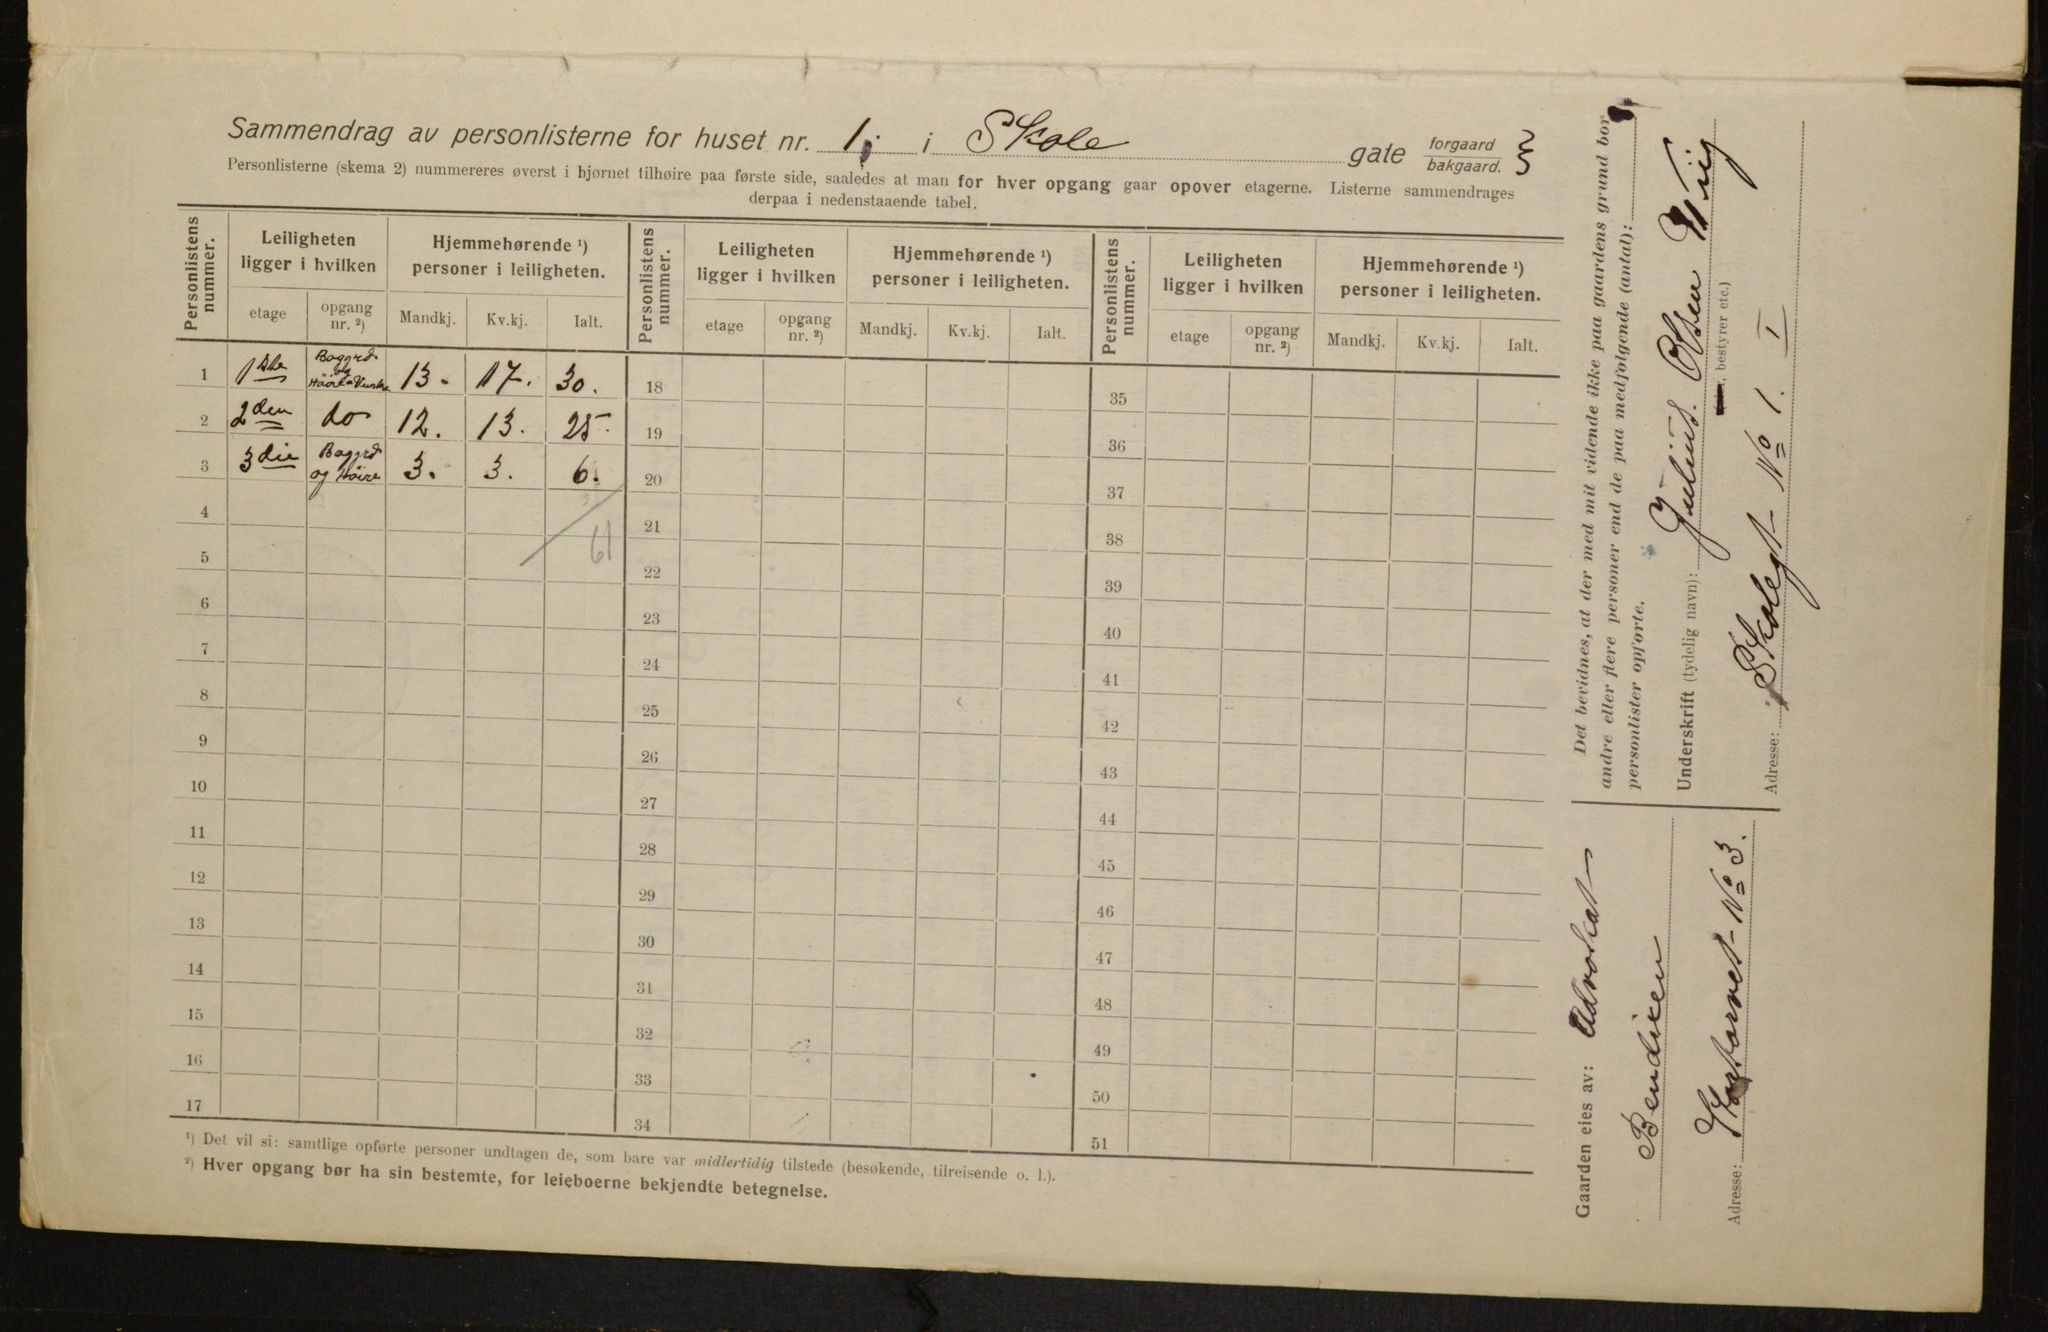 Sammendrag av personlisterne for huset nr. 1, i Skole gate forgaard bakgaard. 3
Personlisterne (skema 2) nummereres øverst i hjørnet tilhøire paa første side, saaledes at man for hver opgang gaar opover etagerne. Listerne sammendrages
derpaa i nedenstaaende tabel.
Personlistens nummer. Leiligheten ligger i hvilken Hjemmehørende ¹) personer i leiligheten. Personlistens nummer. Leiligheten ligger i hvilken Hjemmehørende ¹) personer i leiligheten. Personlistens nummer. Leiligheten ligger i hvilken Hjemmehørende ¹) personer i leiligheten.
etage opgang nr. ²) Mandkj. Kv.kj. Ialt. etage opgang nr. ²) Mandkj. Kv.kj. Ialt. etage opgang nr. ²) Mandkj. Kv.kj. Ialt.
1 1ste Baggrd og Höire Venstre 13. 17. 30. 18 35
2 2den do 12. 13. 25. 19 36
3 3die Baggrd og Höire 3. 3. 6. 20 37
4 21 38
5 61 22 39
6 23 40
7 24 41
8 25 42
9 26 43
10 27 44
11 28 45
12 29 46
13 30 47
14 31 48
15 32 49
16 33 50
17 34 51
¹) Det vil si: samtlige opførte personer undtagen de, som bare var midlertidig tilstede (besøkende, tilreisende o. l.).
²) Hver opgang bør ha sin bestemte, for leieboerne bekjendte betegnelse.
Det bevidnes, at der med mit vidende ikke paa gaardens grund bor
andre eller flere personer end de paa medfølgende (antal):
personlister opførte.
Underskrift (tydelig navn): Julius Olsen Wiig
, bestyrer etc.)
Adresse: Skolegt No 1. I
Gaarden eies av: Advokat
Bendixen
Adresse: No 3.